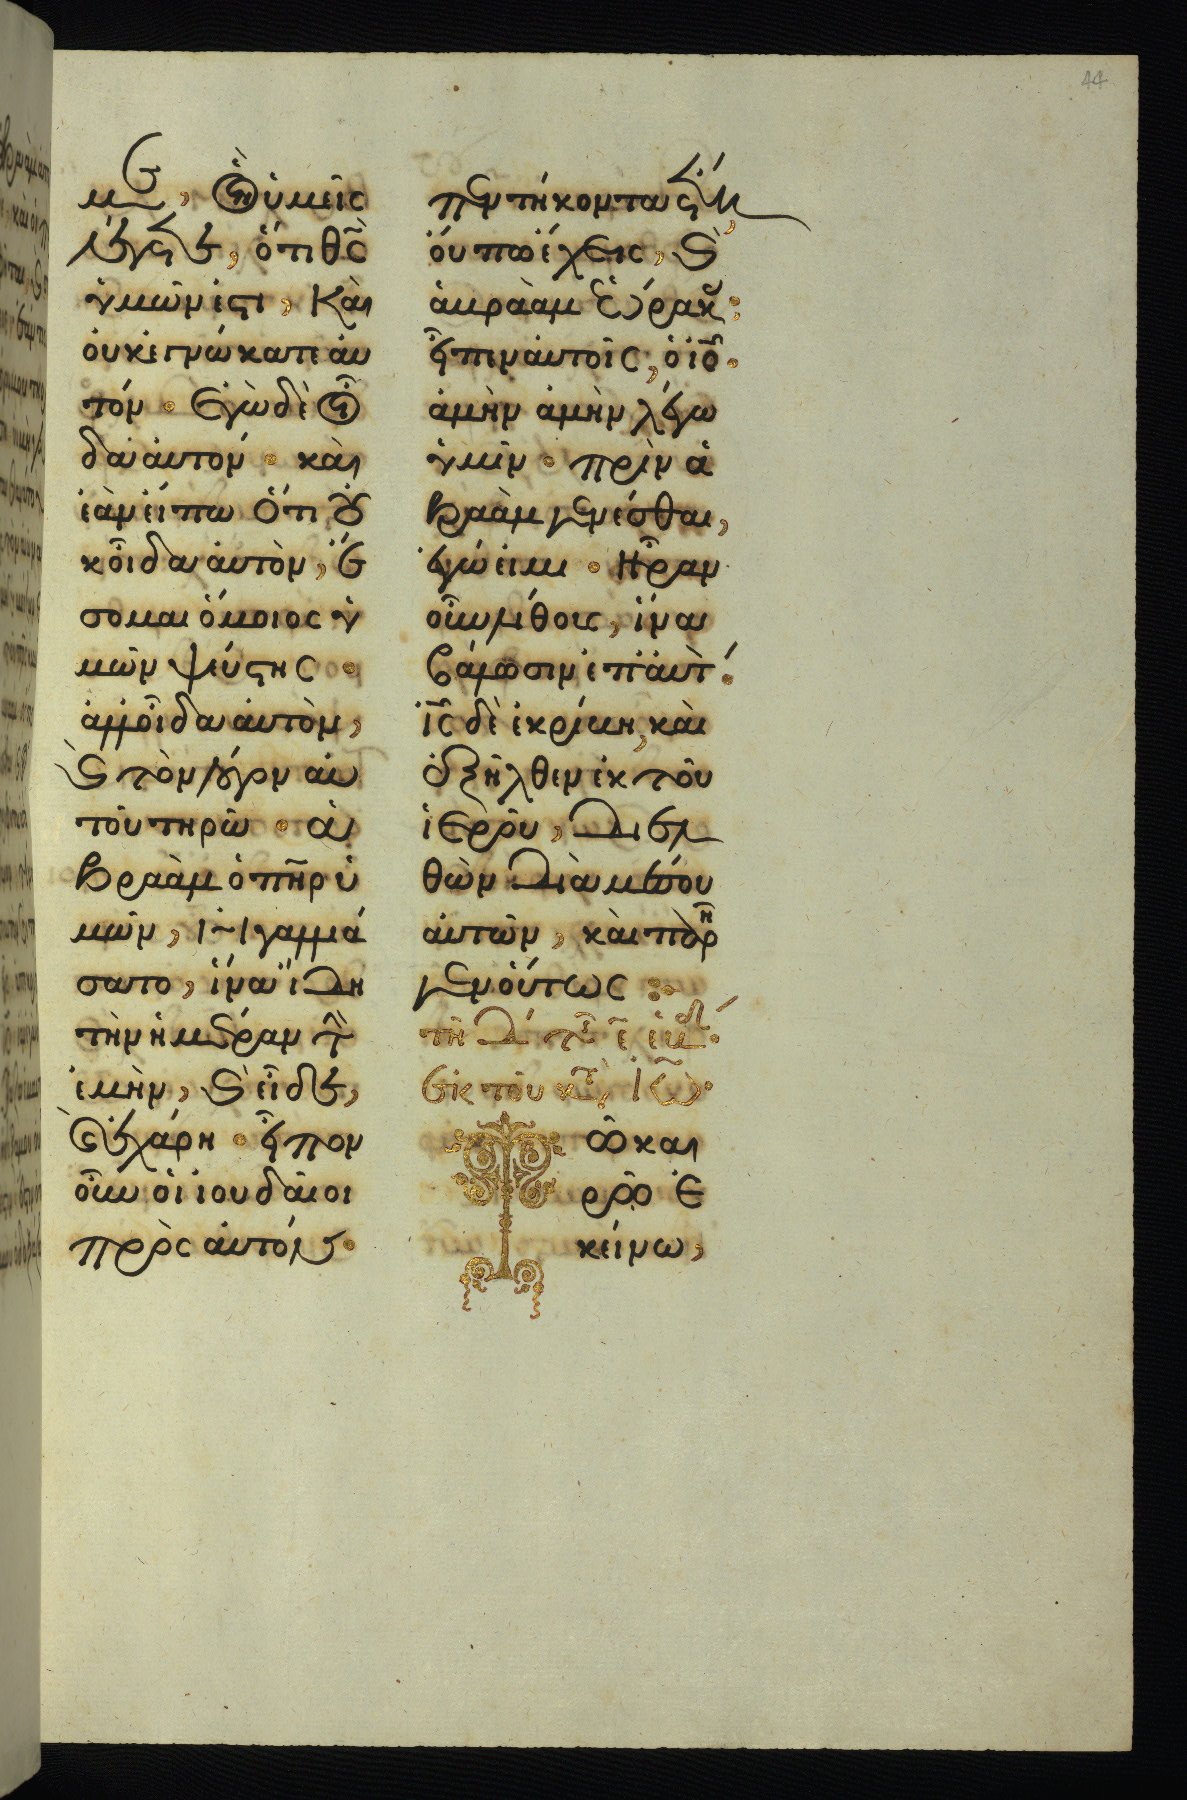 44
με, ὃν ὑμεῖς
λέγετε, ὅτι θς̄
ὑμῶν ἐστι, καὶ
οὐκ ἐγνώκατε αὐ
τόν. Ἐγὼ δὲ οἶ
δα αὐτόν. καὶ
ἐὰν εἴπω ὅτι οὐ
κ οἶδα αὐτὸν, ἔ
σομαι ὅμοιος ὑ
μῶν ψεύστης.
ἀλλ' οἶδα αὐτὸν,
καὶ τὸν λόγον αὐ
τοῦ τηρῶ. Ἀ
βραὰμ ὁ πη̄ρ ὑ
μῶν, ἠγαλλιά
σατο, ἵνα ἴδη
τὴν ἡμέραν τὴν
ἐμὴν, καὶ εἶδε,
καὶ ἐχάρη. εἶπον
οὖν οἱ ἰουδαῖοι
πρὸς αὐτόν.
πεντήκοντα ἔτη
οὔπω ἔχεις, καὶ
ἀβραὰμ ἑώρακας:
εἶπεν αὐτοῖς, ὁ ις̄.
ἀμὴν ἀμὴν λέγω
ὑμῖν. πρὶν ἀ
βραὰμ γενέσθαι,
ἐγώ εἰμι. Ἦραν
οὖν λίθους, ἵνα
βάλωσιν ἐπ' αὐτ.
ις̄ δὲ ἐκρύβη, καὶ
ἐξῆλθεν ἐκ τοῦ
ἱεροῦ, διελ
θὼν διὰ μέσου
αὐτῶν, καὶ παρῆ
γεν οὕτως:
τῆ δ τῆς ε ἑβδ.
ἐκ τοῦ κτ Ἰω.
Τῶ και
ρῶ ἐ
κείνω,